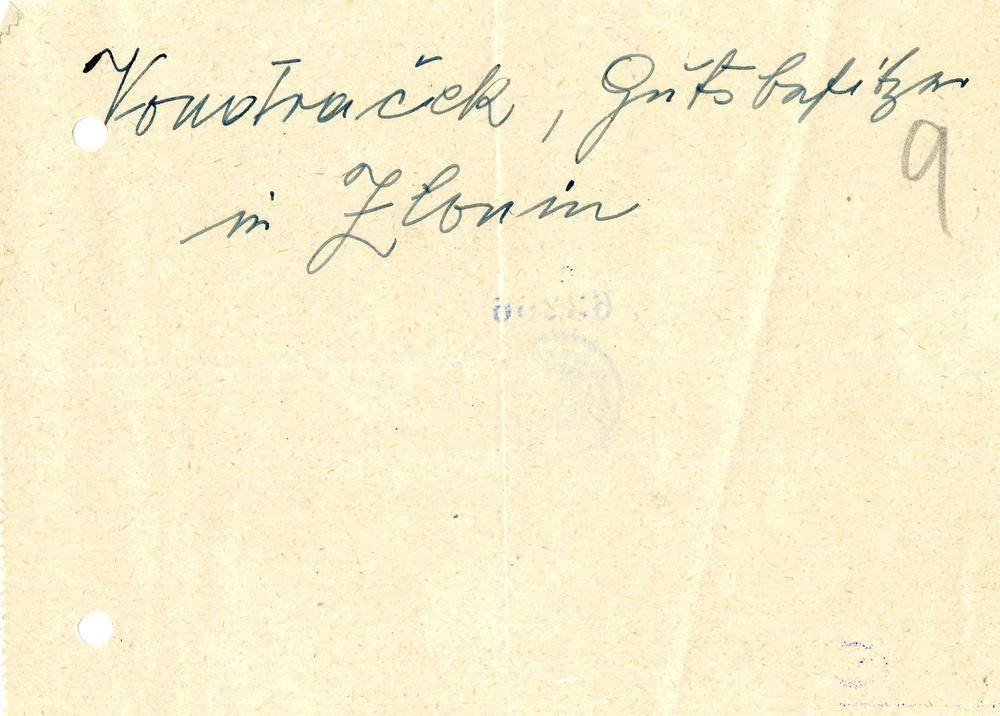 Vondraček, Gutsbesitzer
9
in Zlonin